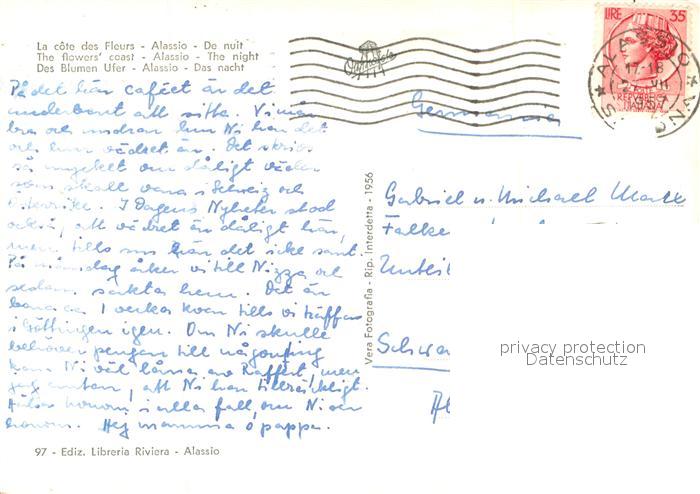 La côte des Fleurs - Alassio - De nuit
The flowers' coast - Alassio - The night
Des Blumen Ufer - Alassio - Das nacht
På det här caféet är det
underbart att sitta. Vi mår
bra och undrar hur Ni har det
och hur vädret är. Det skrivs
så mycket om dåligt väder
som skall vara i Schweiz och
Österrike. I Dagens Nyheter stod
också, att vädret är dåligt här,
men tills nu är det icke sant.
På måndag åker vi till Nizza och
sedan sakta hem. Det är
bara ca 1 vecka kvar tills vi träffas
i Göttingen igen. Om Ni skulle
behöva pengar till någonting
kan Ni väl låna av Raffet, men
jag antar, att Ni har tillräckligt.
Hälsa honom i alla fall, om Ni ser
honom. Hej mamma o pappa.
97 - Ediz. Libreria Riviera - Alassio
Vera Fotografia - Rip. Interdetta - 1956
LIRE 35
ALASSIO
17-18
1957
Germania
Gabriel u. Michael
Falke
Schwa
privacy protection
Datenschutz